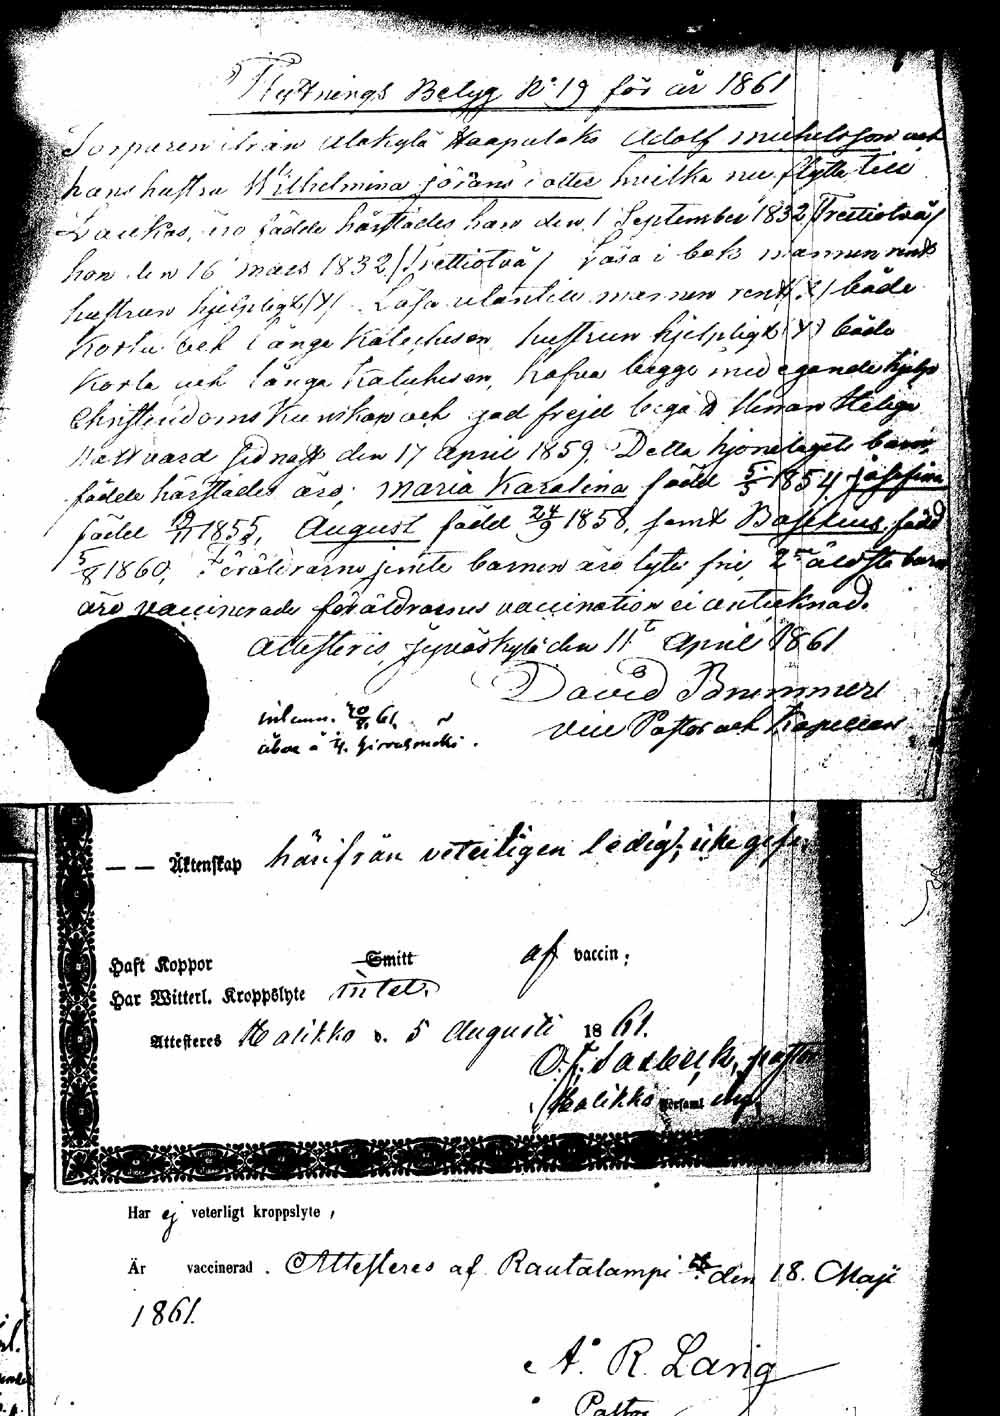 Flyttnings Betyg No 19 för år 1861
Torparen ifrån Alakylä Haapalaks Adolf Michelsson och
hans hustru Wilhelmina Jörans dotter hvilka nu flytta till
Laukas, äro födde härstädes han den 1 September 1832 /Trettiotvå/
hon den 16 Mars 1832 /Trettiotvå/ Läsa i bok mannen rent
hustrun hjelpligt /x/ Läsa utantill mannen rent /x/ både
Korta och långa Katechesen, hustrun hjelpligt /x/ både
Korta och långa Katechesen, hafva begge
Christendoms Kunskap och god frejd begå H Herrans Heliga
Nattvard sednast den 17 April 1859. Detta hjonelagets barn,
födde härstädes äro; Maria Karolina född 5/5 1854, Josefina
född 9/11 1855, August född 24/9 1858, samt född
5/8 1860, Föräldrarne jemte barnen äro lytes fri, 2ne äldsta barn
äro vaccinerade föräldrarnes vaccination ei antecknad.
Attesteris Jyväskylä den 11te April 1861
David Brummer
Vice Pastor och Kapellan
inlemn. 20/8 61.
åboe å 4.
— — Äktenskap härifrån veterligen ledig,
Haft Koppor Smitt af vaccin;
Har Witterl. Kroppslyte intet.
Attesteres Halikko d. 5 Augusti 1861.
pastor
Halikko Församl
Har ej veterligt kroppslyte,
Är vaccinerad. Attesteres af Rautalampi den 18. Maji
1861.
A. R. Lang
Pastor